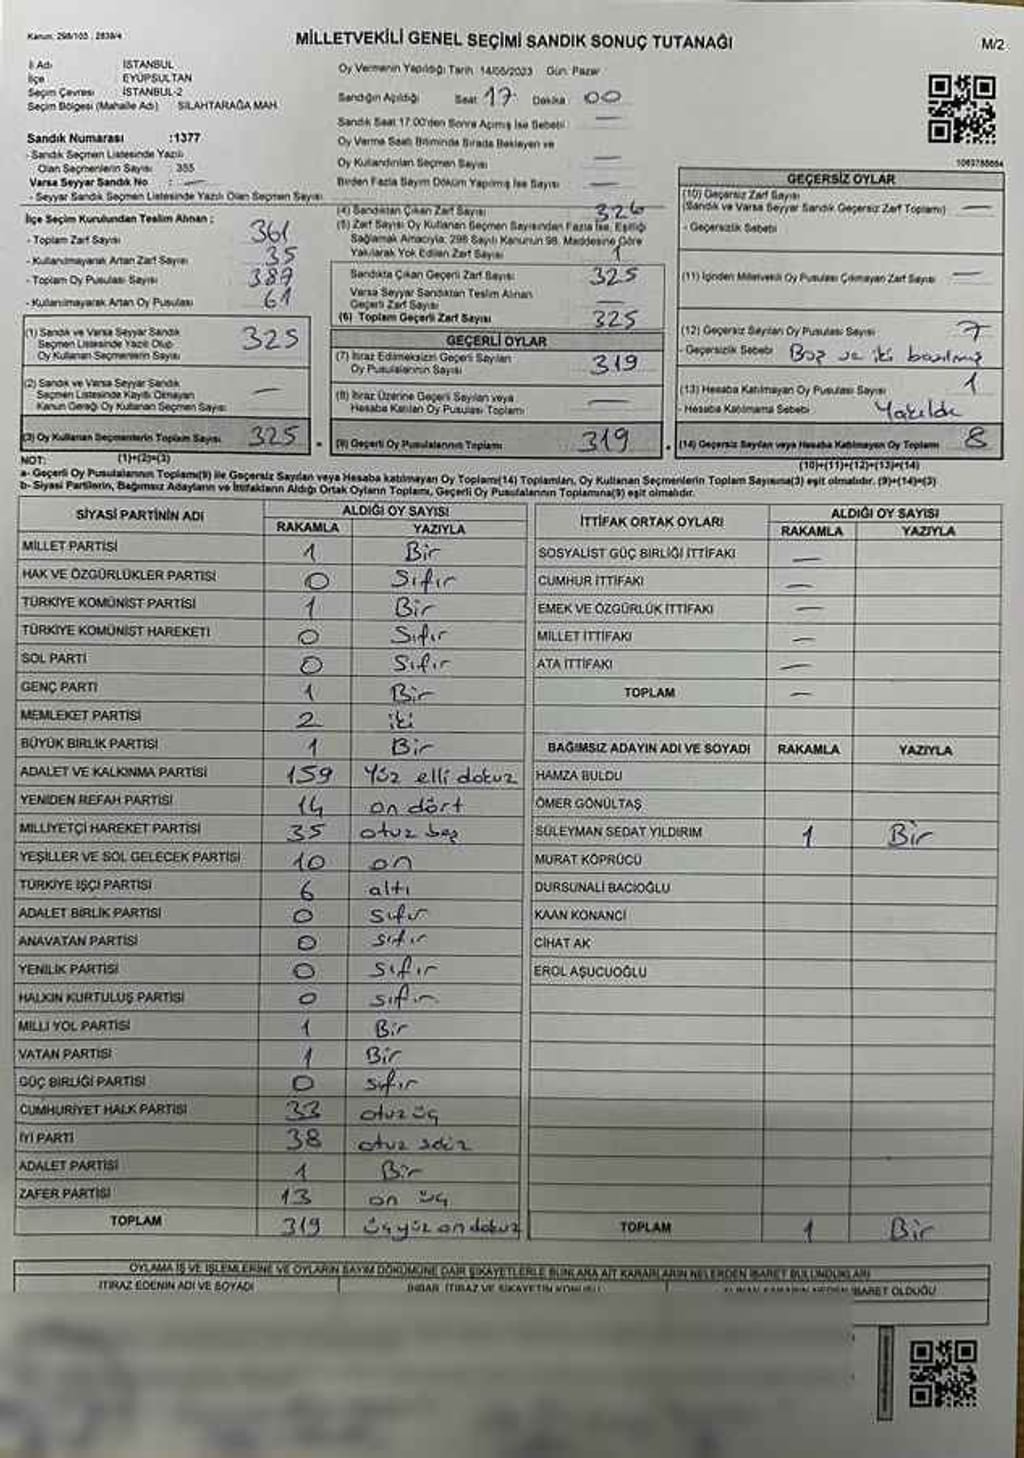 Kanun: 298/105 , 2839/4
MİLLETVEKİLİ GENEL SEÇİMİ SANDIK SONUÇ TUTANAĞI
M/2
İl Adı İSTANBUL
İlçe EYÜPSULTAN
Seçim Çevresi İSTANBUL-2
Seçim Bölgesi (Mahalle Adı) SİLAHTARAĞA MAH.
Sandık Numarası :1377
- Sandık Seçmen Listesinde Yazılı
Olan Seçmenlerin Sayısı : 355
Varsa Seyyar Sandık No : —
- Seyyar Sandık Seçmen Listesinde Yazılı Olan Seçmen Sayısı
Oy Vermenin Yapıldığı Tarih 14/05/2023 Gün: Pazar
Sandığın Açıldığı Saat 17 Dakika 00
Sandık Saat 17.00'den Sonra Açılmış İse Sebebi —
Oy Verme Saati Bitiminde Sırada Bekleyen ve
Oy Kullandırılan Seçmen Sayısı —
Birden Fazla Sayım Döküm Yapılmış İse Sayısı —
İlçe Seçim Kurulundan Teslim Alınan :
- Toplam Zarf Sayısı 361
- Kullanılmayarak Artan Zarf Sayısı 35
- Toplam Oy Pusulası Sayısı 387
- Kullanılmayarak Artan Oy Pusulası 61
(1) Sandık ve Varsa Seyyar Sandık
Seçmen Listesinde Yazılı Olup
Oy Kullanan Seçmenlerin Sayısı 325
(2) Sandık ve Varsa Seyyar Sandık
Seçmen Listesinde Kayıtlı Olmayan
Kanun Gereği Oy Kullanan Seçmen Sayısı —
(3) Oy Kullanan Seçmenlerin Toplam Sayısı 325
(1)+(2)=(3)
(4) Sandıktan Çıkan Zarf Sayısı 326
(5) Zarf Sayısı Oy Kullanan Seçmen Sayısından Fazla İse, Eşitliği
Sağlamak Amacıyla; 298 Sayılı Kanunun 98. Maddesine Göre
Yakılarak Yok Edilen Zarf Sayısı 1
Sandıkta Çıkan Geçerli Zarf Sayısı 325
Varsa Seyyar Sandıktan Teslim Alınan
Geçerli Zarf Sayısı —
(6) Toplam Geçerli Zarf Sayısı 325
GEÇERLİ OYLAR
(7) İtiraz Edilmeksizin Geçerli Sayılan
Oy Pusulalarının Sayısı 319
(8) İtiraz Üzerine Geçerli Sayılan veya
Hesaba Katılan Oy Pusulası Toplamı —
(9) Geçerli Oy Pusulalarının Toplamı 319
1063788664
GEÇERSİZ OYLAR
(10) Geçersiz Zarf Sayısı
(Sandık ve Varsa Seyyar Sandık Geçersiz Zarf Toplamı) —
- Geçersizlik Sebebi
(11) İçinden Milletvekili Oy Pusulası Çıkmayan Zarf Sayısı —
(12) Geçersiz Sayılan Oy Pusulası Sayısı 7
- Geçersizlik Sebebi Boş ve iki basılmış
(13) Hesaba Katılmayan Oy Pusulası Sayısı 1
- Hesaba Katılmama Sebebi Yakıldı
(14) Geçersiz Sayılan veya Hesaba Katılmayan Oy Toplamı 8
(10)+(11)+(12)+(13)=(14)
NOT:
a- Geçerli Oy Pusulalarının Toplamı(9) ile Geçersiz Sayılan veya Hesaba katılmayan Oy Toplamı(14) Toplamları, Oy Kullanan Seçmenlerin Toplam Sayısına(3) eşit olmalıdır. (9)+(14)=(3)
b- Siyasi Partilerin, Bağımsız Adayların ve İttifakların Aldığı Ortak Oyların Toplamı, Geçerli Oy Pusulalarının Toplamına(9) eşit olmalıdır.
SİYASİ PARTİNİN ADI ALDIĞI OY SAYISI
RAKAMLA YAZIYLA
MİLLET PARTİSİ 1 Bir
HAK VE ÖZGÜRLÜKLER PARTİSİ 0 Sıfır
TÜRKİYE KOMÜNİST PARTİSİ 1 Bir
TÜRKİYE KOMÜNİST HAREKETİ 0 Sıfır
SOL PARTİ 0 Sıfır
GENÇ PARTİ 1 Bir
MEMLEKET PARTİSİ 2 iki
BÜYÜK BİRLİK PARTİSİ 1 Bir
ADALET VE KALKINMA PARTİSİ 159 Yüz elli dokuz
YENİDEN REFAH PARTİSİ 14 on dört
MİLLİYETÇİ HAREKET PARTİSİ 35 otuz beş
YEŞİLLER VE SOL GELECEK PARTİSİ 10 on
TÜRKİYE İŞÇİ PARTİSİ 6 altı
ADALET BİRLİK PARTİSİ 0 sıfır
ANAVATAN PARTİSİ 0 sıfır
YENİLİK PARTİSİ 0 sıfır
HALKIN KURTULUŞ PARTİSİ 0 sıfır
MİLLİ YOL PARTİSİ 1 Bir
VATAN PARTİSİ 1 Bir
GÜÇ BİRLİĞİ PARTİSİ 0 sıfır
CUMHURİYET HALK PARTİSİ 33 otuz üç
İYİ PARTİ 38 otuz sekiz
ADALET PARTİSİ 1 Bir
ZAFER PARTİSİ 13 on üç
TOPLAM 319 üçyüz on dokuz
İTTİFAK ORTAK OYLARI ALDIĞI OY SAYISI
RAKAMLA YAZIYLA
SOSYALİST GÜÇ BİRLİĞİ İTTİFAKI —
CUMHUR İTTİFAKI —
EMEK VE ÖZGÜRLÜK İTTİFAKI —
MİLLET İTTİFAKI —
ATA İTTİFAKI —
TOPLAM —
BAĞIMSIZ ADAYIN ADI VE SOYADI RAKAMLA YAZIYLA
HAMZA BULDU
ÖMER GÖNÜLTAŞ
SÜLEYMAN SEDAT YILDIRIM 1 Bir
MURAT KÖPRÜCÜ
DURSUNALİ BACIOĞLU
KAAN KONANCI
CİHAT AK
EROL AŞUCUOĞLU
TOPLAM 1 Bir
OYLAMA İŞ VE İŞLEMLERİNE VE OYLARIN SAYIM DÖKÜMÜNE DAİR ŞİKAYETLERLE BUNLARA AİT KARARLARIN NELERDEN İBARET BULUNDUKLARI
İTİRAZ EDENİN ADI VE SOYADI İHBAR, İTİRAZ VE ŞİKAYETİN KONUSU İBARET OLDUĞU